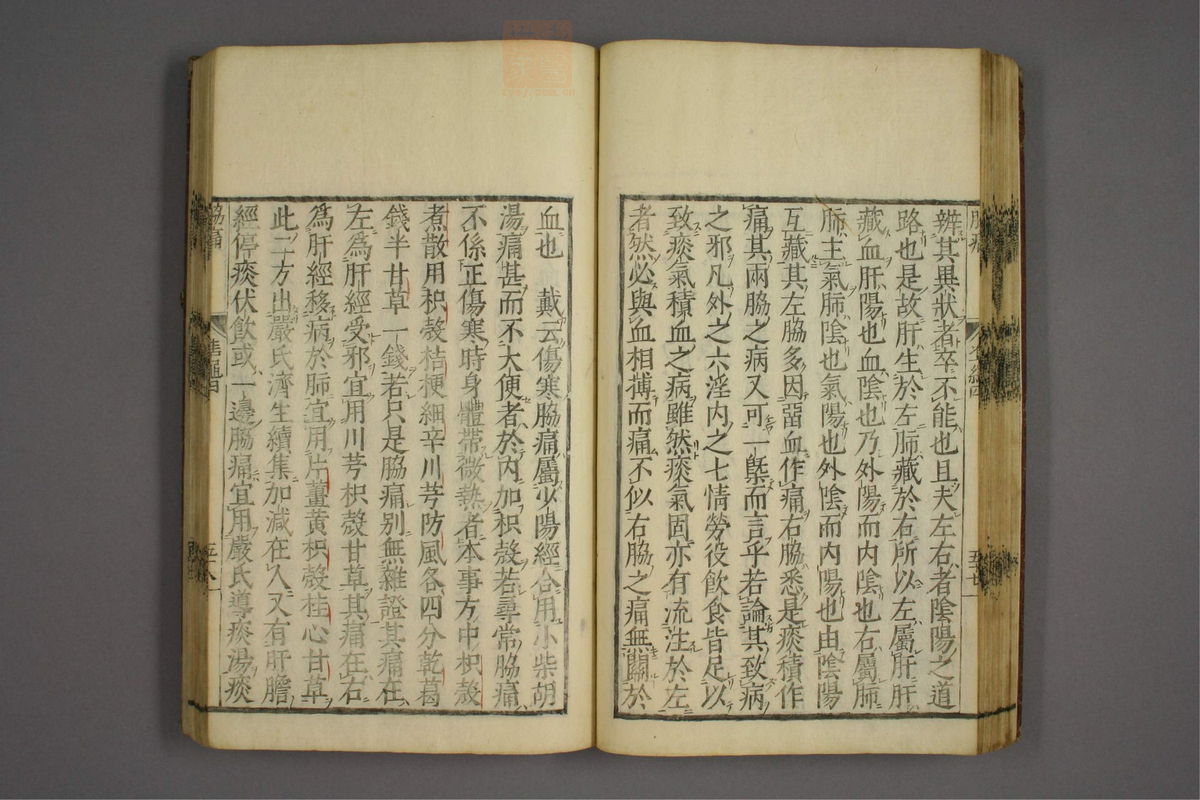 辨其異狀者卒不能也且夫左右者陰陽之道
路也是故肝生於左肺藏於右所以左屬肝肝
藏血肝陽也血陰也乃外陽而內陰也右屬肺
肺主氣肺陰也氣陽也外陰而內陽也由陰陽
互藏其左脇多因畱血作痛右脇悉是痰積作
痛其兩脇之病又可一槩而言乎若論其致病
之邪凡外之六淫內之七情勞役飮食皆足以
致痰氣積血之病雖然痰氣固亦有流注於左
者然必與血相搏而痛不似右脇之痛無關於
血也 戴云傷寒脇痛屬少陽經合用小柴胡
湯痛甚而不大便者於內加枳殼若尋常脇痛
不係正傷寒時身體帶微熱者本事方中枳殼
煮散用枳殼桔梗細辛川芎防風各四分乾葛
錢半甘草一錢若只是脇痛別無雜證其痛在
左爲肝經受邪宜用川芎枳殼甘草其痛在右
爲肝經移病於肺宜用片薑黃枳殼桂心甘草
此二方出嚴氏濟生續集加減在人又有肝膽
經停痰伏飮或一邊脇痛宜用嚴氏導痰湯痰
脇痛